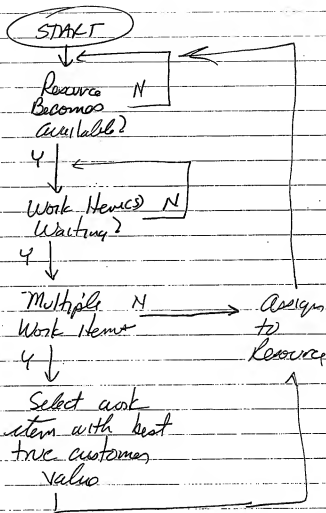 START
Resource N
Becomes
available?
Y
Work Item(s) N
Waiting?
Y
Multiple N
Work Items
Assign
to
Resource
Y
Select work
item with best
true customer
value